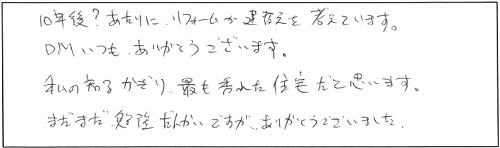 10年後?あたりに、リフォームか建替えを考えています。
DMいつも、ありがとうございます。
私の知るかぎり、最も秀れた住宅だと思います。
まだまだ、勉強だんかいですが、ありがとうございました。